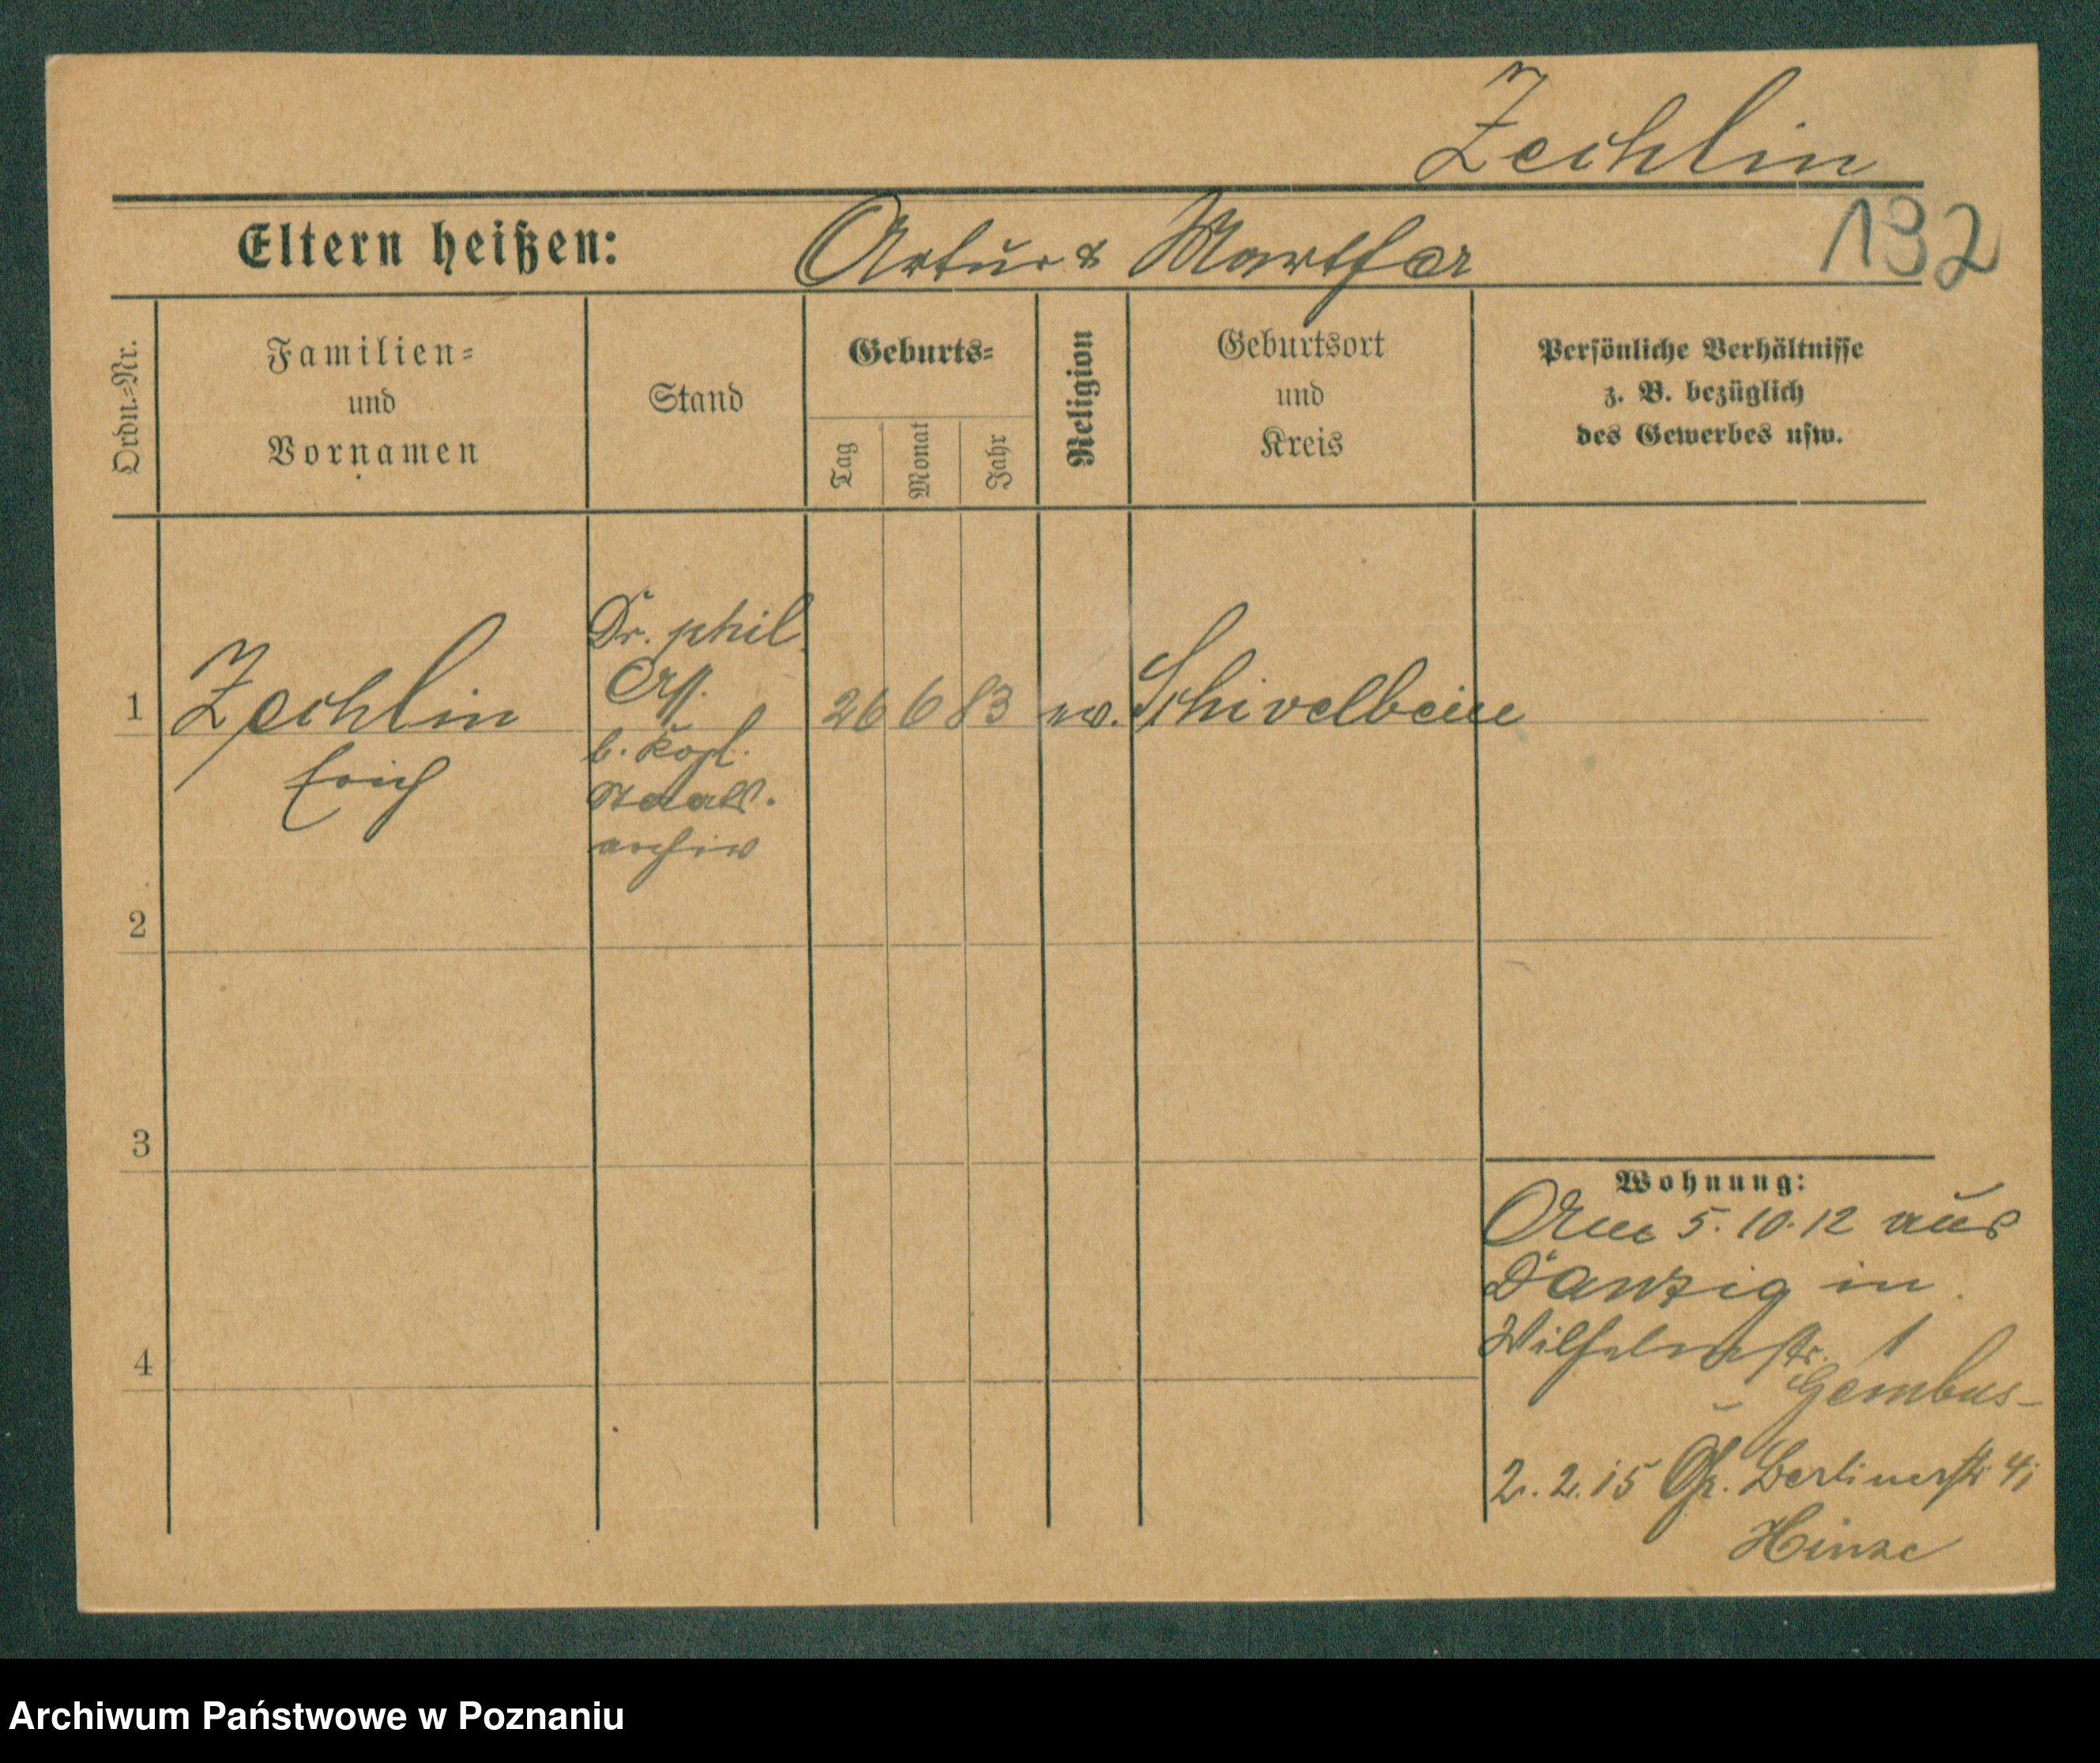 Zechlin
Eltern heißen: Artur & Martha
132
Ordn.-Nr.
Familien-
und
Vornamen
Stand
Geburts-
Tag
Monat
Jahr
Religion
Geburtsort
und
Kreis
Persönliche Verhältnisse
z. B. bezüglich
des Gewerbes usw.
1
Zechlin
Erich
Dr. phil.
Ass.
b. Kögl.
Staats.
archiv
26 6 83
ev.
Schivelbein
2
3
4
Wohnung:
Am 5.10.12 aus
Danzig in
Wilhelmstr. 1
Gembus-
2.2.15 Berlinerstr
Hinze
Archiwum Państwowe w Poznaniu